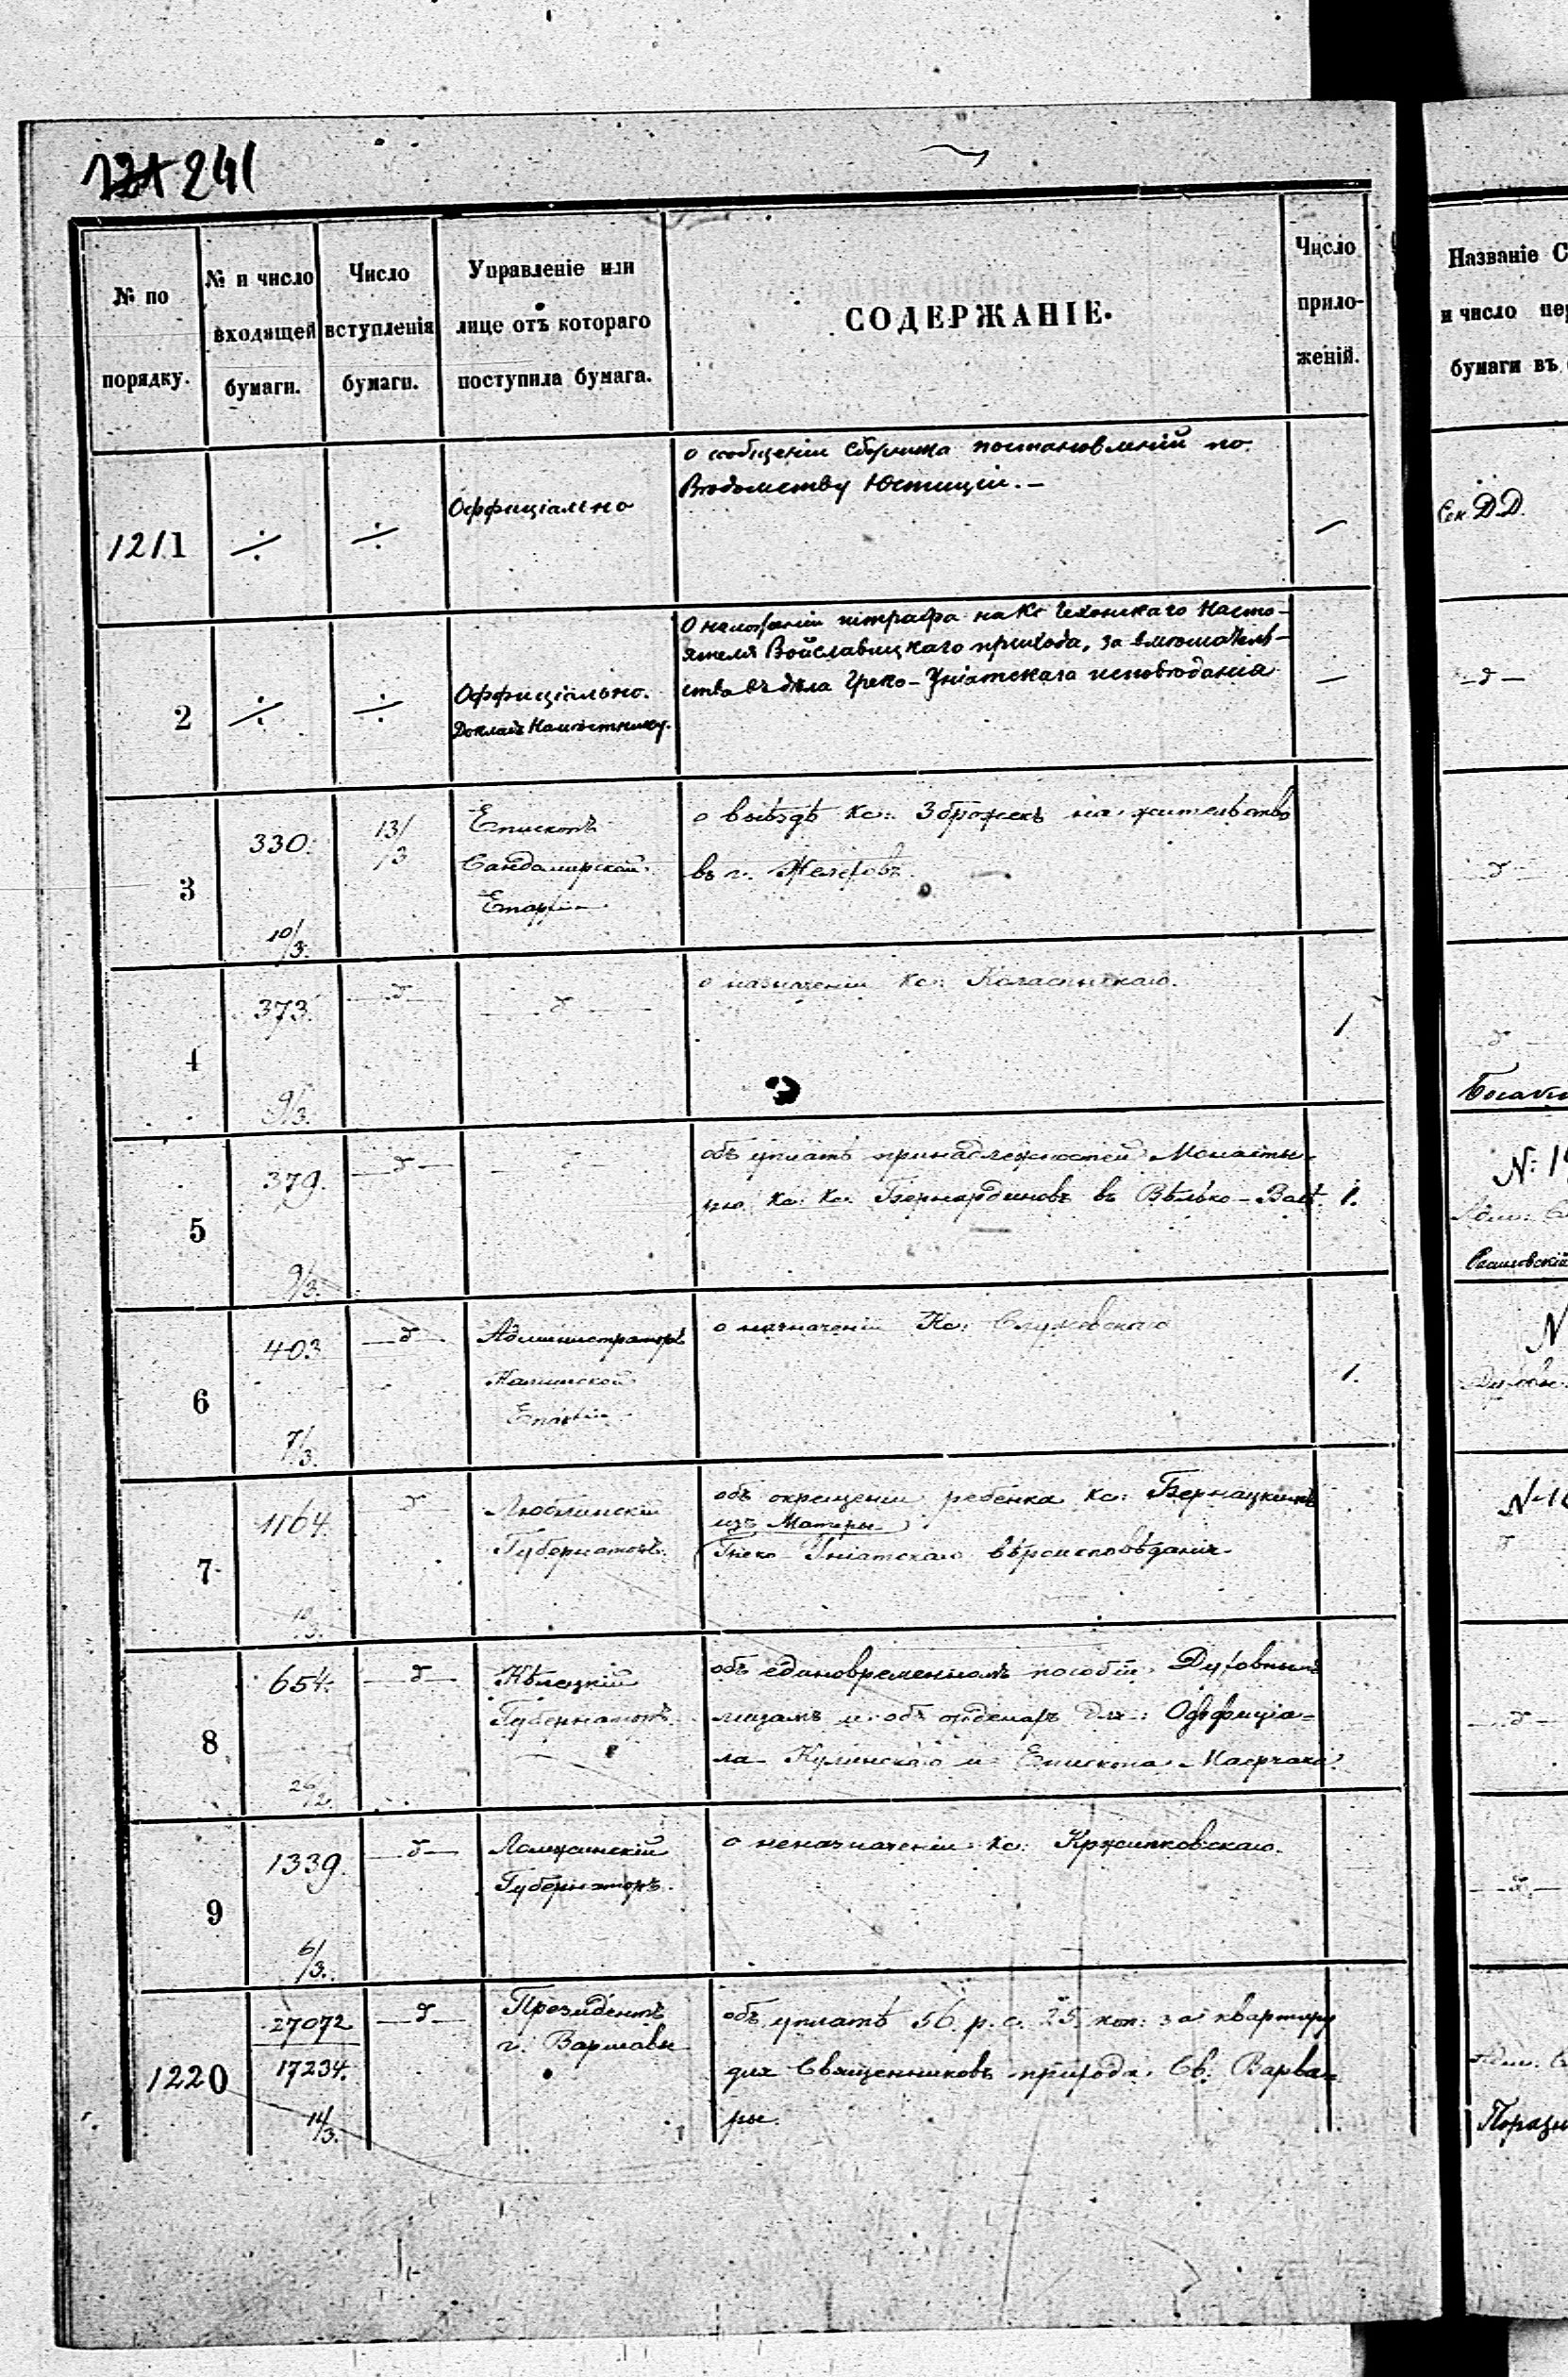 121 241
№ по порядку.
№ и число входящей бумаги.
Число вступленія бумаги.
Управленіе или лице отъ котораго поступила бумага.
СОДЕРЖАНІЕ.
Число приложеній.
Названіе С
и число пер
бумаги въ
1211
÷
÷
Оффиціально
о сообщеніи Сборника постановленій по
Вѣдомству Юстиціи. –
–
Сек. ДД.
2
÷
÷
Оффиціально.
Докладъ Намѣстнику.
О наложеніи штрафа на Кс
Насто-
ятеля Войславицкаго прихода, за вмѣшатель-
ства въ дѣла Греко-Уніатскаго исповѣданія
–
–д–
3
330.
10/3.
13/3
Епископъ
Сандомирской
Епархіи
о выѣздѣ Кс: Зброжекъ на жительство
въ г.
–д–
4
373.
9/3.
–д–
–д–
о назначеніи Кс:
1
д
5
379.
9/3.
–д–
объ уплатѣ принадлежностей Монасты-
рю Кс. Кс. Бернардиновъ въ Вѣлько-Волѣ.
1.
№ 1
6
403
7/3.
–д–
Администраторъ
Епархіи
о назначеніи Кс:
1.
N
7
1164.
–д–
Люблинскій
Губернаторъ.
объ окрещеніи ребенка Кс: Бернацкимъ
изъ Матери
Греко-Уніатскаго вѣроисповѣданія
№ 1
8
654.
26/2.
–д–
Кѣлецкій
Губернаторъ.
объ единовременномъ пособіи Духовнымъ
лицамъ и объ орденахъ для Оффиціа-
ла Кулинскаго и Епископа Маерчака.
–д–
9
1339.
6/3.
–д–
Ломжинскій
Губернаторъ.
о неназначеніи Кс: Кржипковскаго.
–д–
1220
27072
17234.
14/3.
–д–
Президентъ
г. Варшавы
объ уплатѣ 56 р. с. 25 коп: за квартиру
для Священниковъ прихода Св. Варва-
ры.